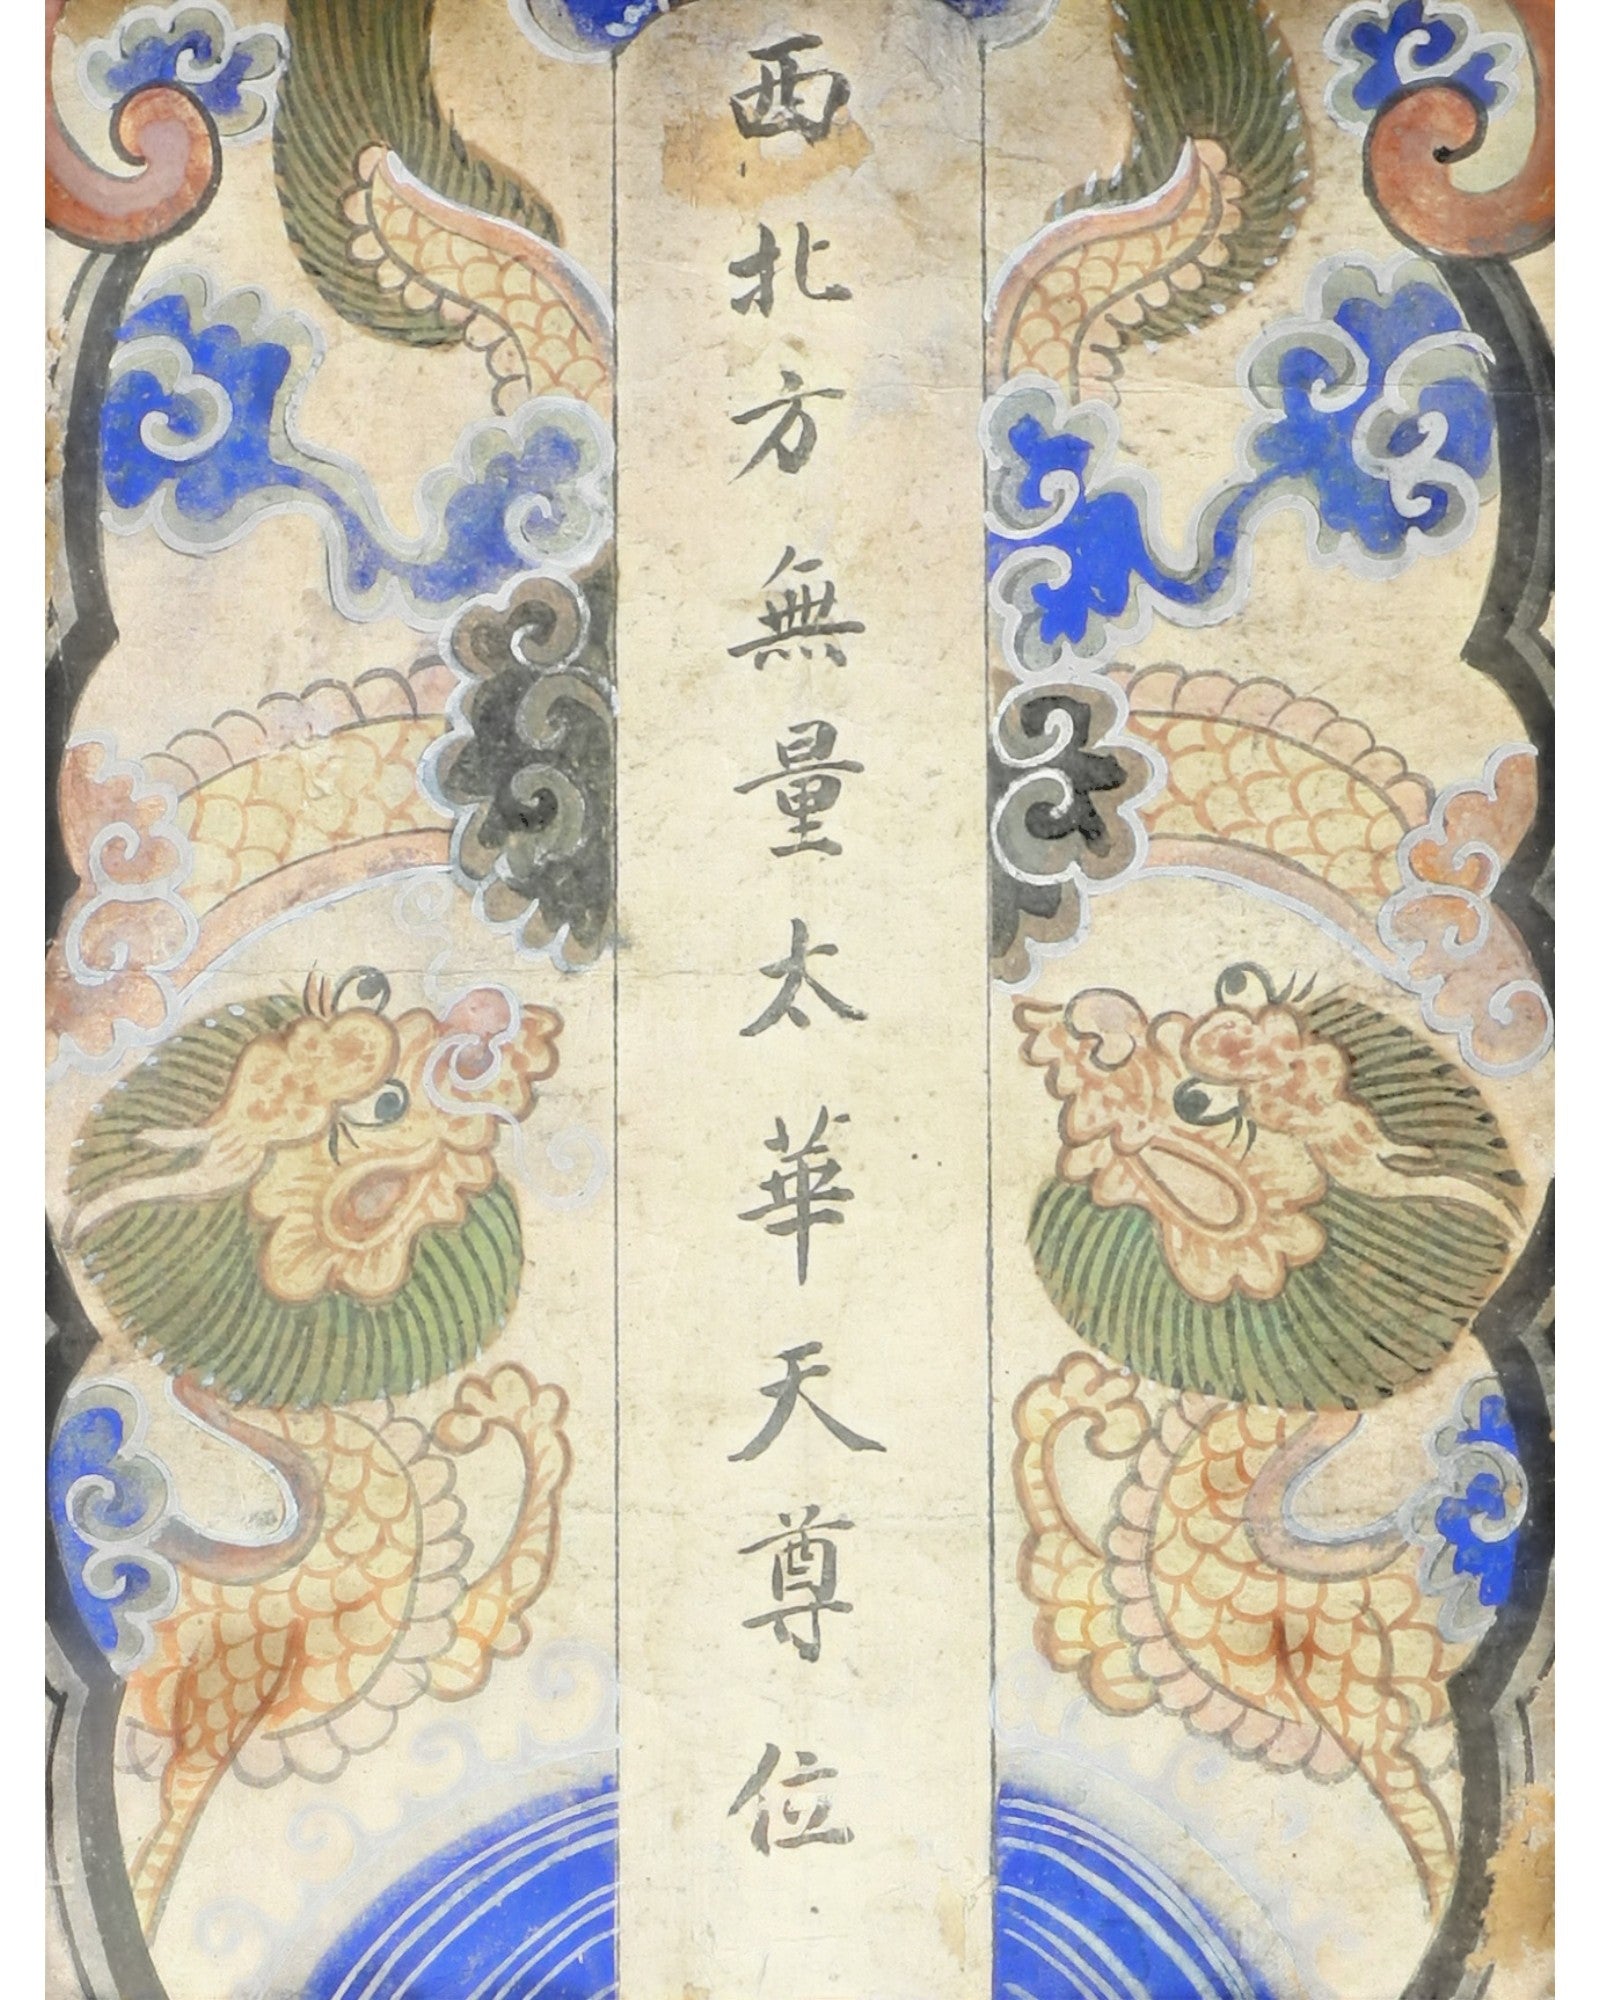 西北方無量太華天尊位